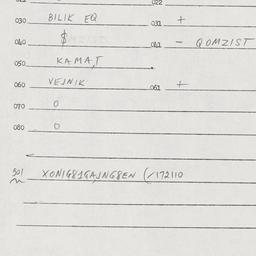 022
030 BILIK EQ 031 +
040 $ 041 - QOMZIST
050 KAMAT
060 VEJNIK 061 +
070 0
080 0
501 XONIG81GAJNG8EN (/172110